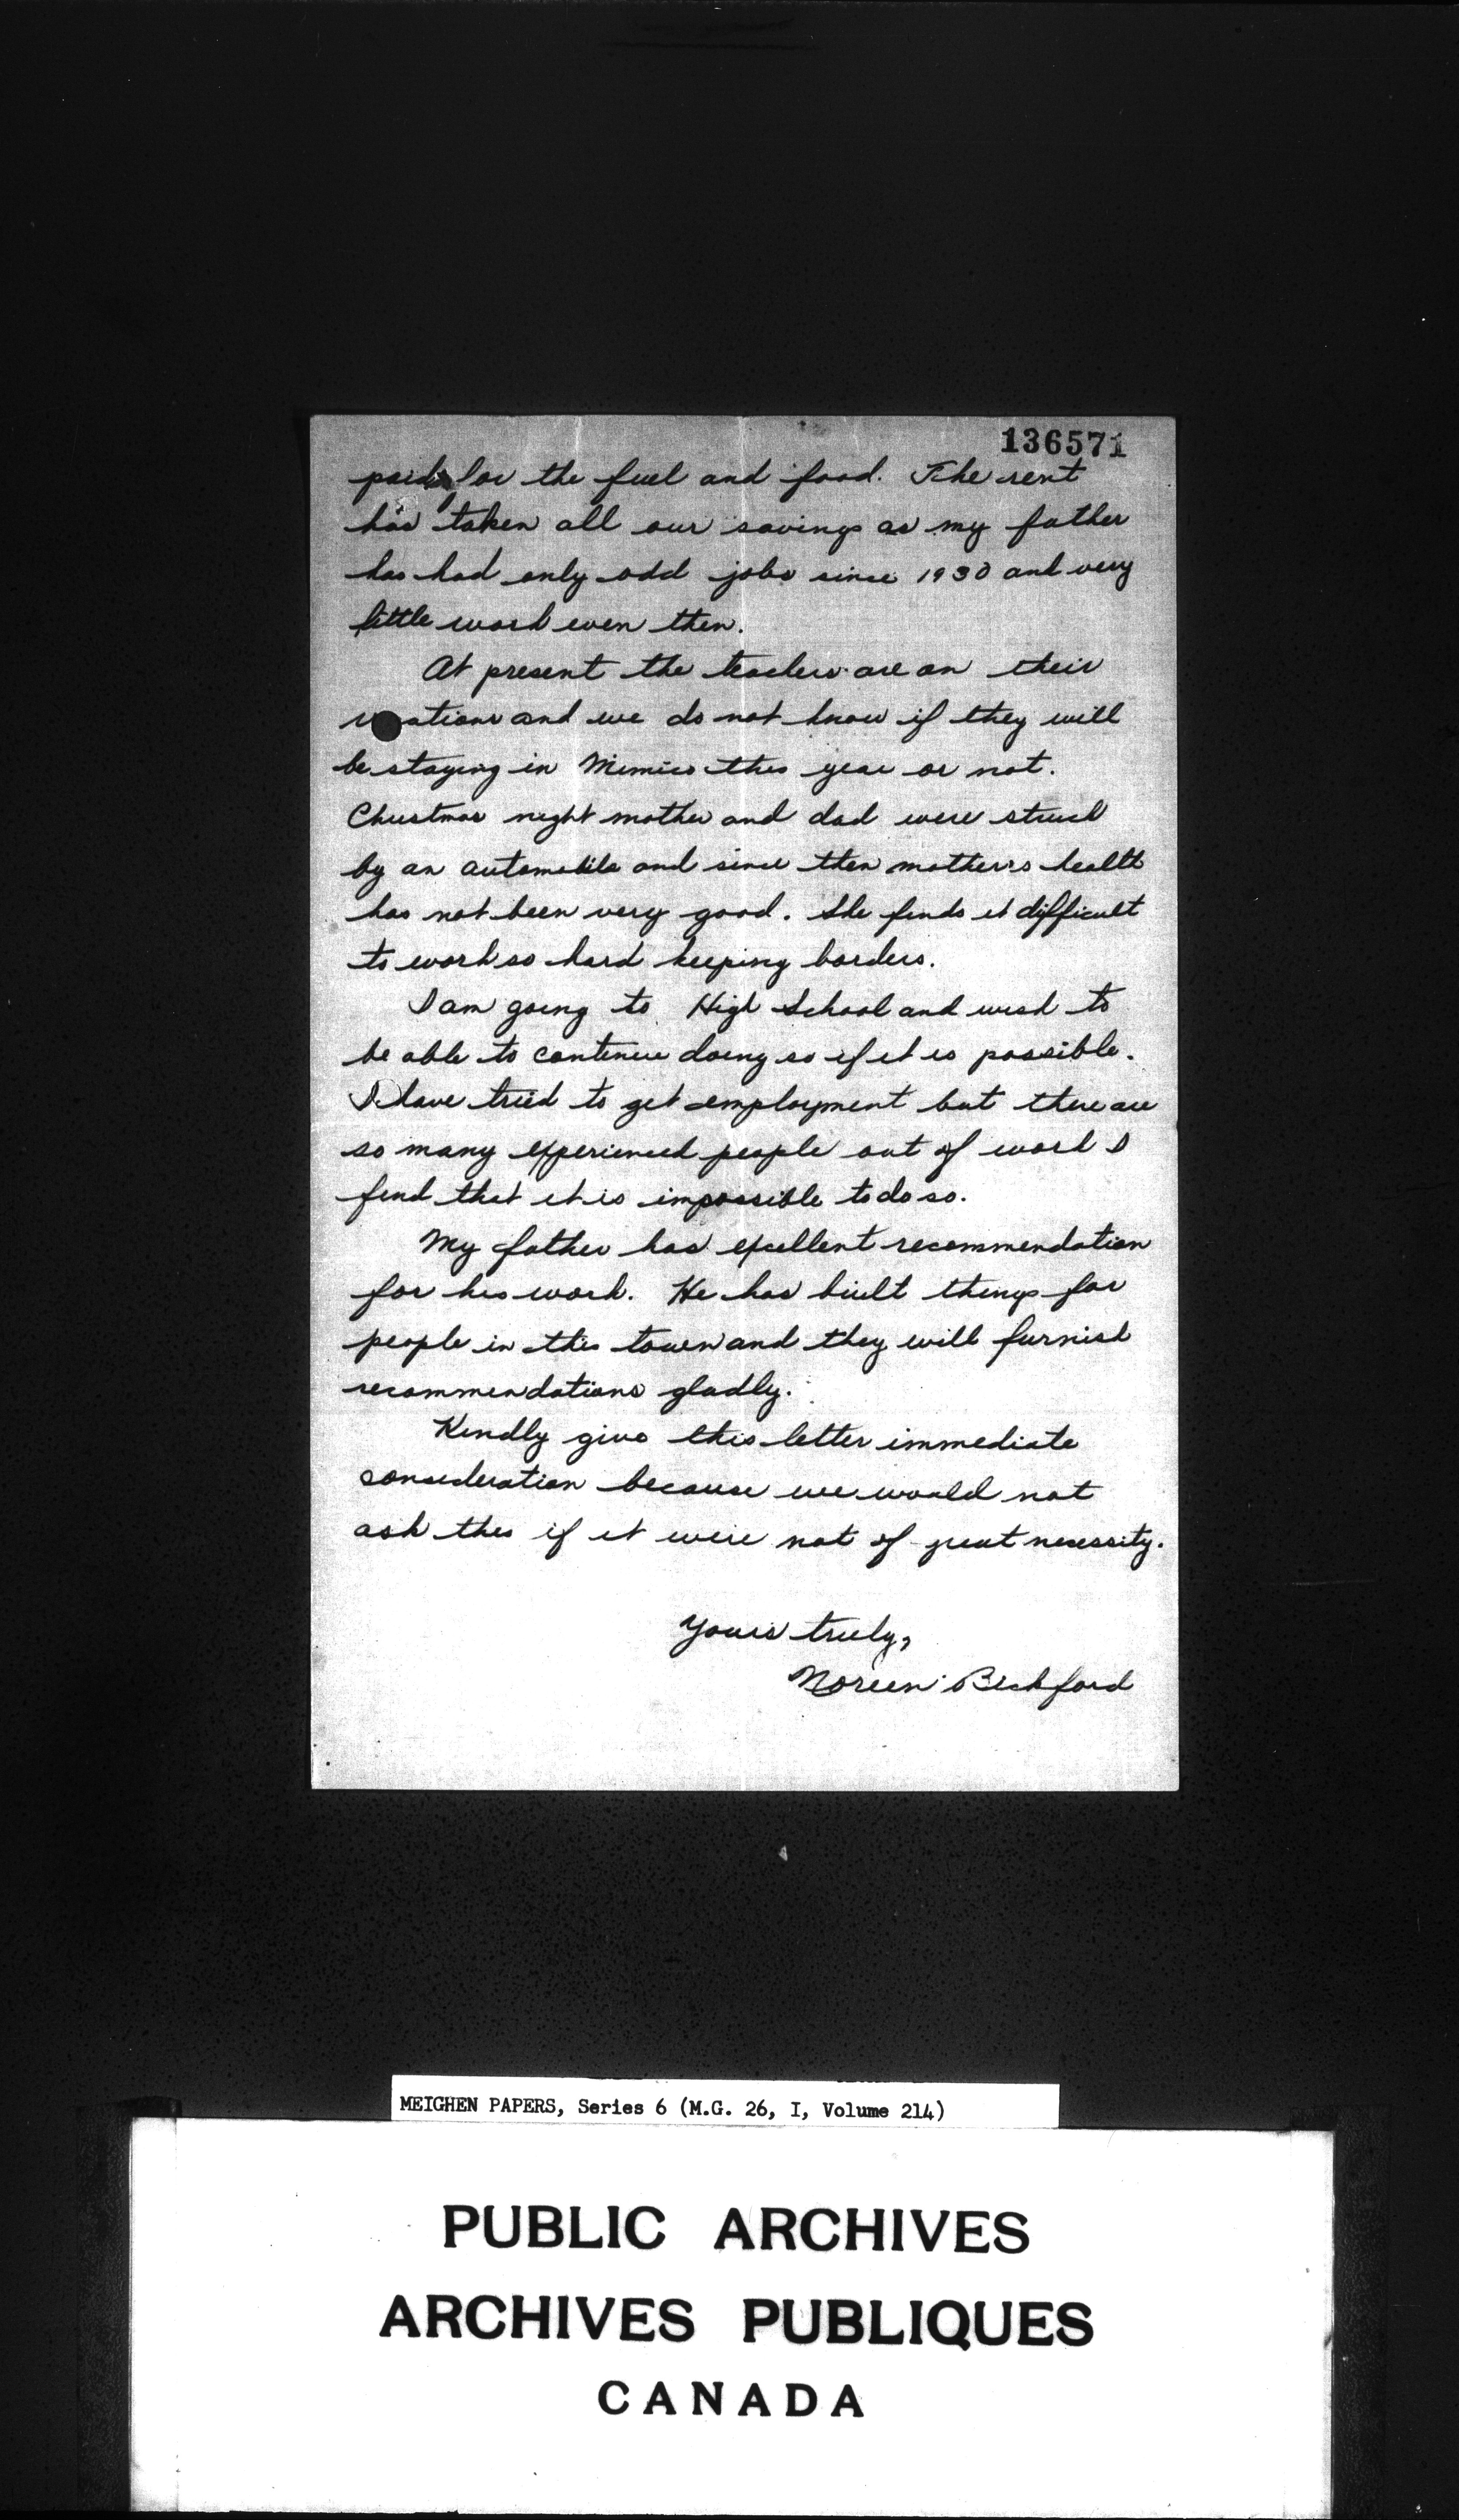 136571
paid for the fuel and food. The rent
has taken all our savings as my father
has had only odd jobs since 1930 and very
little work even then.
At present the teachers are on their
vacations and we do not know if they will
be staying in Mimico this year or not.
Christmas night mother and dad were struck
by an automobile and since then mother's health
has not been very good. She finds it difficult
to work so hard keeping borders.
I am going to High School and wish to
be able to continue doing so if it is possible.
I have tried to get employment but there are
so many experienced people out of work I
find that it is impossible to do so.
My father has excellent recommendation
for his work. He has built things for
people in this town and they will furnish
recommendations gladly.
Kindly give this letter immediate
consideration because we would not
ask this if it were not of great necessity.
Yours truly,
Noreen Bickford
MEIGHEN PAPERS, Series 6 (M.G. 26, I, Volume 214)
PUBLIC ARCHIVES
ARCHIVES PUBLIQUES
CANADA